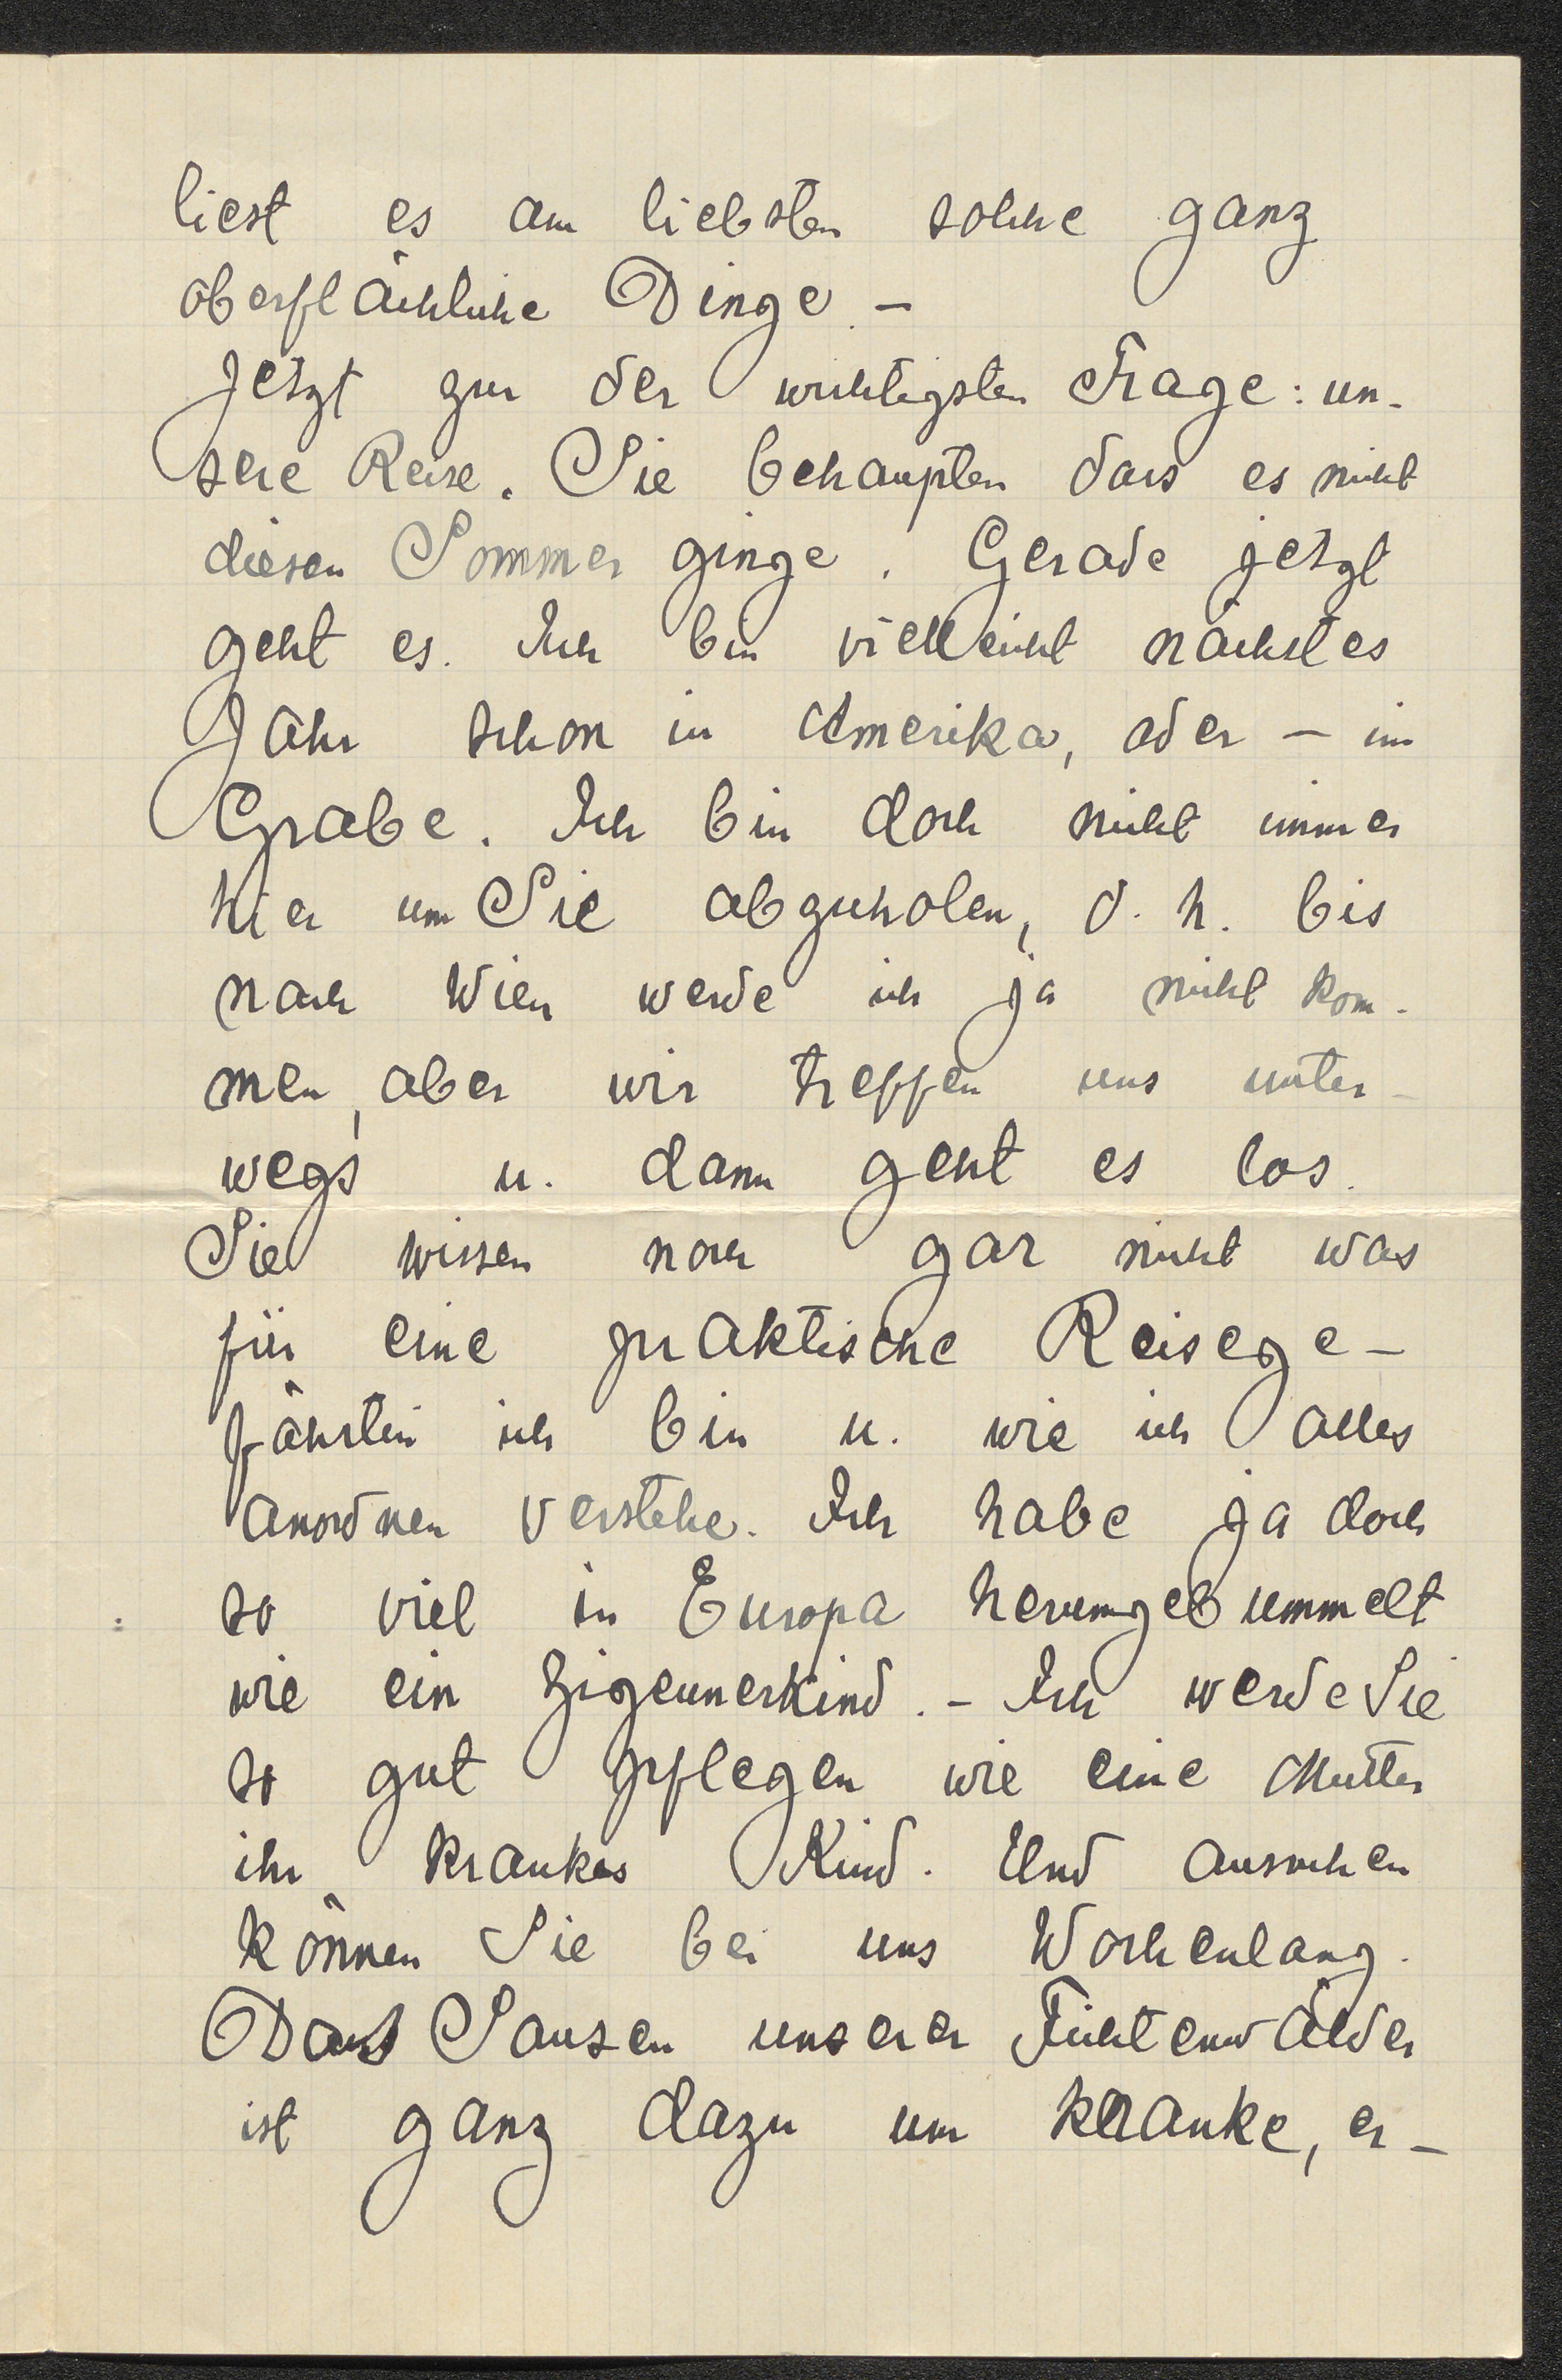 liest es am liebsten solche ganz
oberflächliche Dinge. –
Jetzt zur der wichtigsten Frage: un-
sere Reise. Sie behaupten dass es nicht
diesen Sommer ginge. Gerade jetzt
geht es. Ich bin vielleicht nächstes
Jahr schon in Amerika, oder – im
Grabe. Ich bin doch nicht immer
hier um Sie abzuholen, d. h. bis
nach Wien werde ich ja nicht kom-
men, aber wir treffen uns unter-
wegs u. dann geht es los.
Sie wissen noch gar nicht was
für eine praktische Reisege-
fährtin ich bin u. wie ich alles
anordnen verstehe. Ich habe ja doch
so viel in Europa herumgebummelt
wie ein Zigeunerkind. – Ich werde Sie
so gut pflegen wie eine Mutter
ihr krankes Kind. Und ausruhen
können Sie bei uns Wochenlang.
Das Sausen unserer Fichtenwälder
ist ganz dazu um kranke, er-